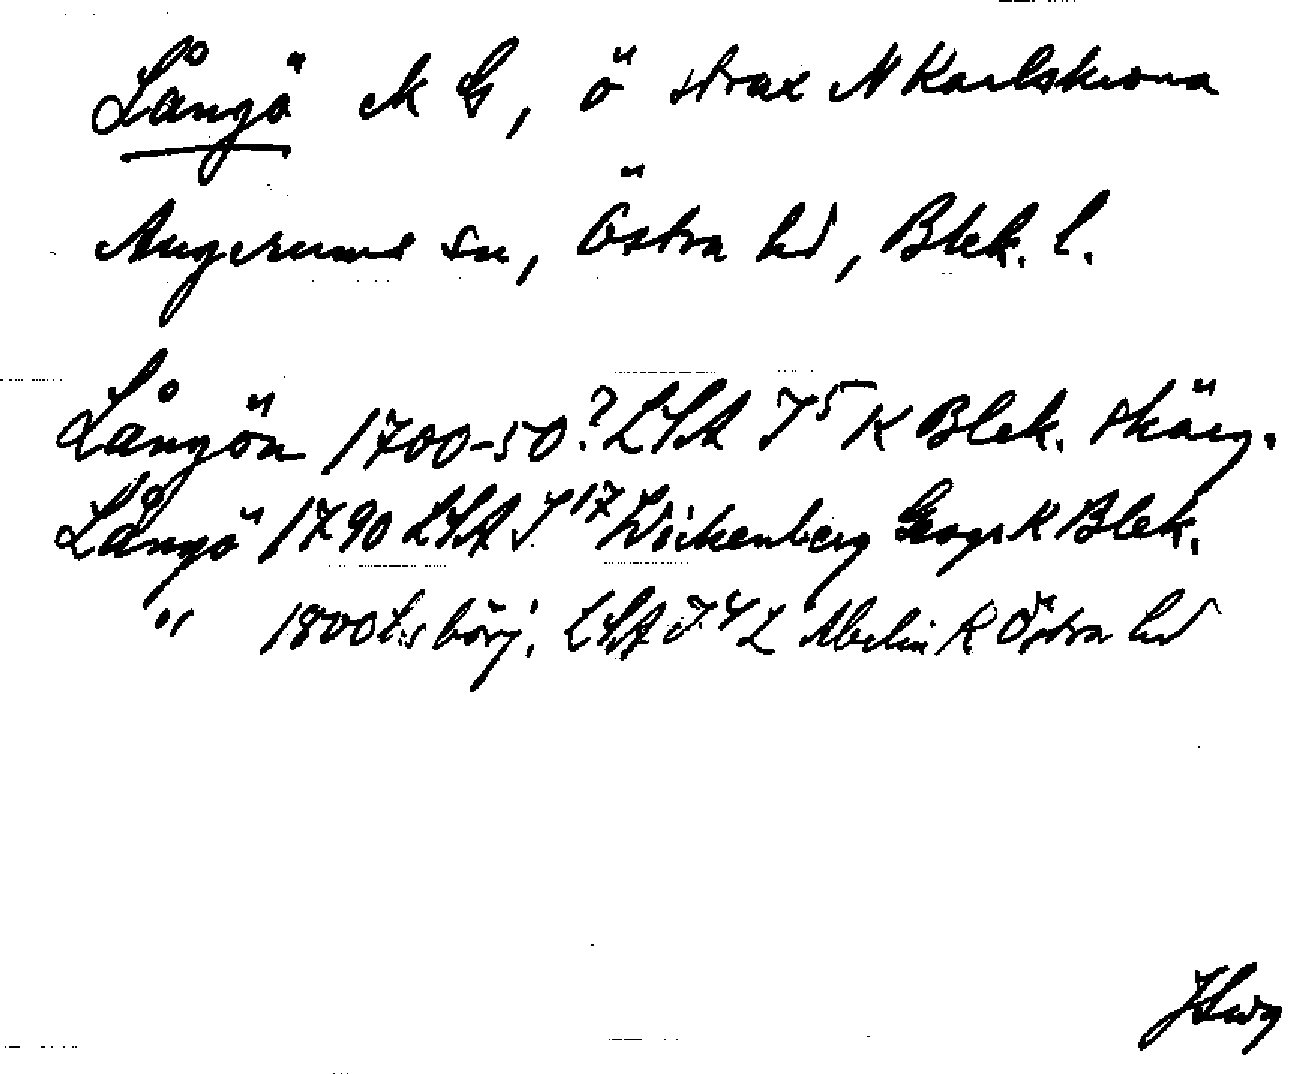 Långö M G, ö strax N Karlskrona
Augerums sn, Östra hd, Blek. l.
Långön 1700-50? LSA J⁵ K Blek. skärg.
Långö 1790 LSA J¹⁷ Wickenberg Geogr K Blek.
" 1800t:s börj. LSA J⁴ Z Abelin K Östra hd